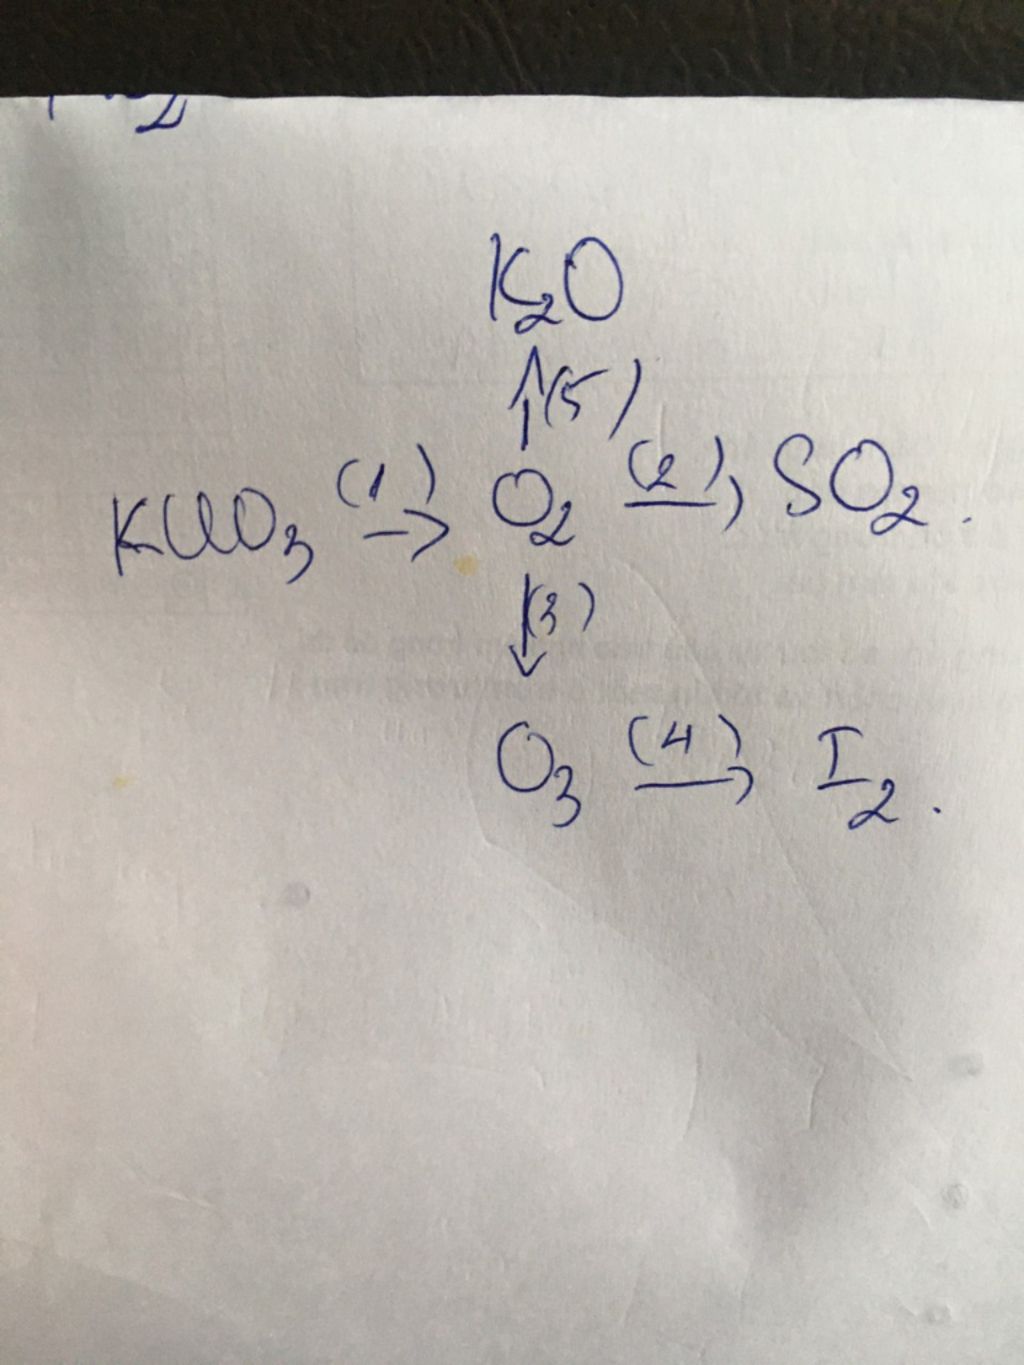 K₂O
↑(5)
KClO₃ (1)→ O₂ (2)→ SO₂.
↓(3)
O₃ (4)→ I₂.